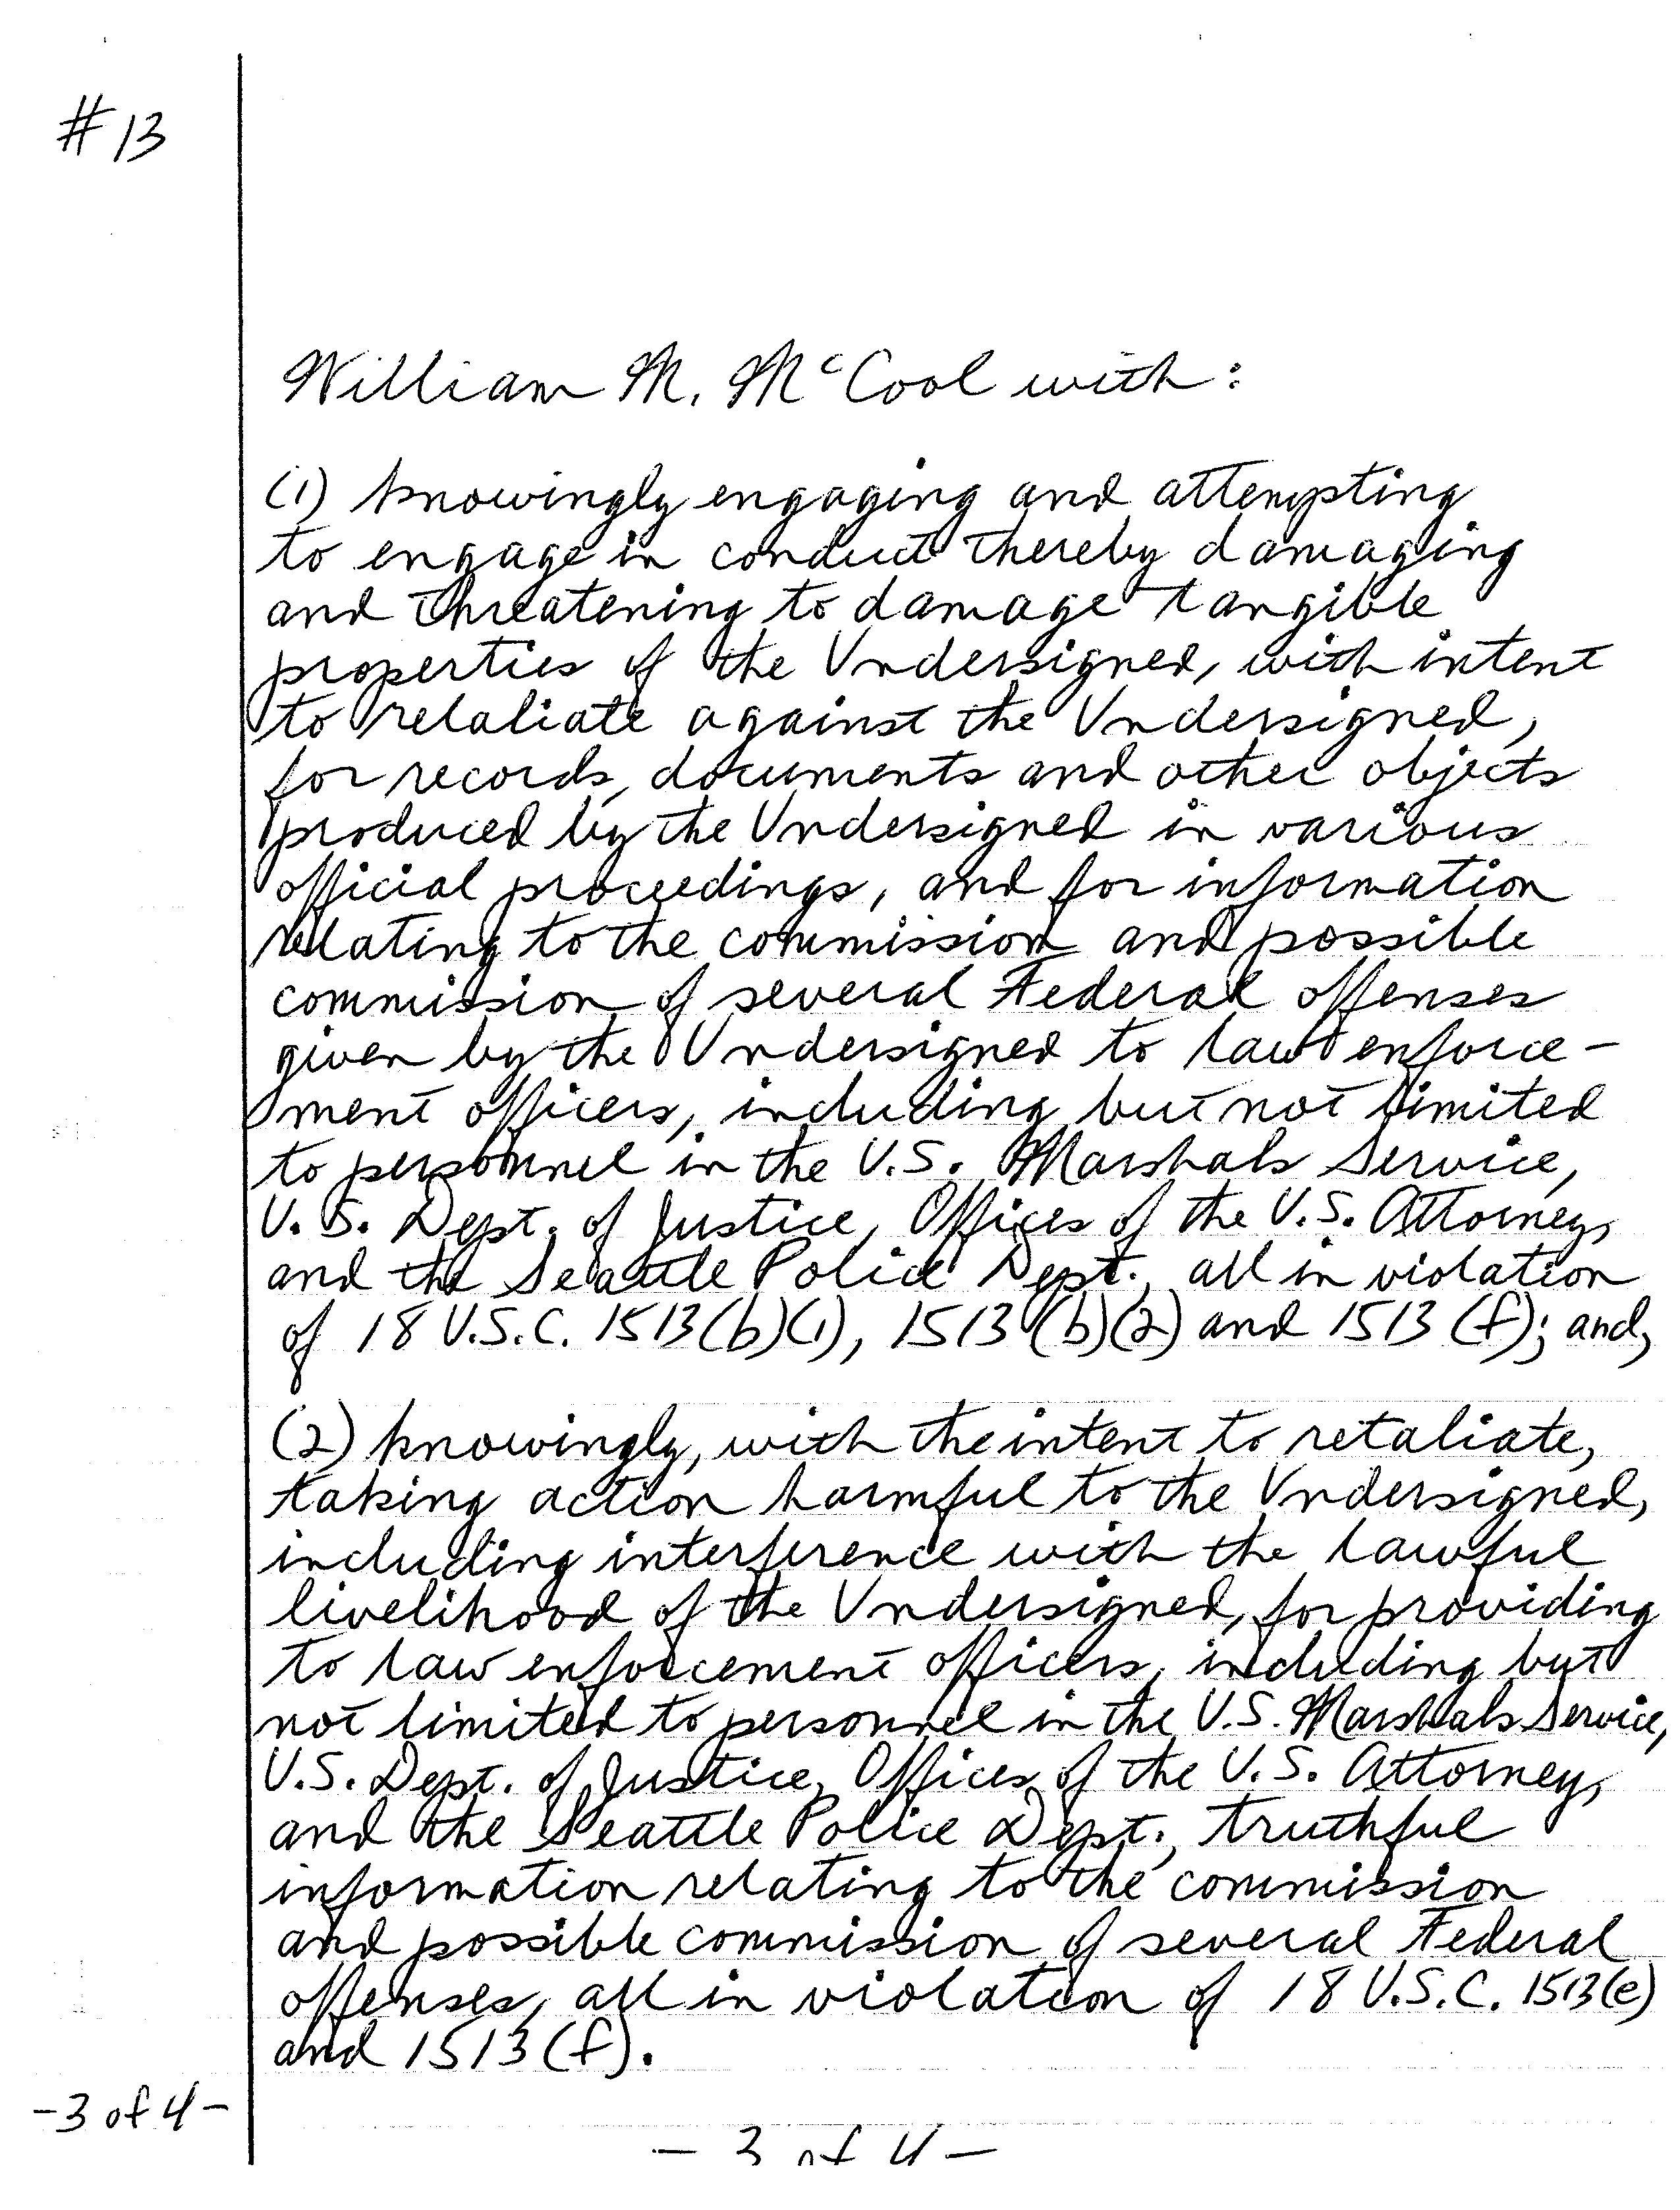 #13
William M. McCool with:
(1) knowingly engaging and attempting
to engage in conduct thereby damaging
and threatening to damage tangible
properties of the Undersigned, with intent
to relaliate against the Undersigned,
for records, documents and other objects
produced by the Undersigned in various
official proceedings, and for information
relating to the commission and possible
commission of several Federal offenses
given by the Undersigned to law enforce-
ment officers, including but not limited
to personnel in the U.S. Marshals Service,
U.S. Dept. of Justice, Offices of the U.S. Attorney,
and the Seattle Police Dept., all in violation
of 18 U.S.C. 1513(b)(1), 1513(b)(2) and 1513(f); and,
(2) knowingly, with the intent to retaliate,
taking action harmful to the Undersigned,
including interference with the lawful
livelihood of the Undersigned, for providing
to law enforcement officers, including but
not limited to personnel in the U.S. Marshals Service,
U.S. Dept. of Justice, Offices of the U.S. Attorney,
and the Seattle Police Dept., truthful
information relating to the commission
and possible commission of several Federal
offenses, all in violation of 18 U.S.C. 1513(e)
and 1513(f).
-3 of 4-
- 3 of 4 -